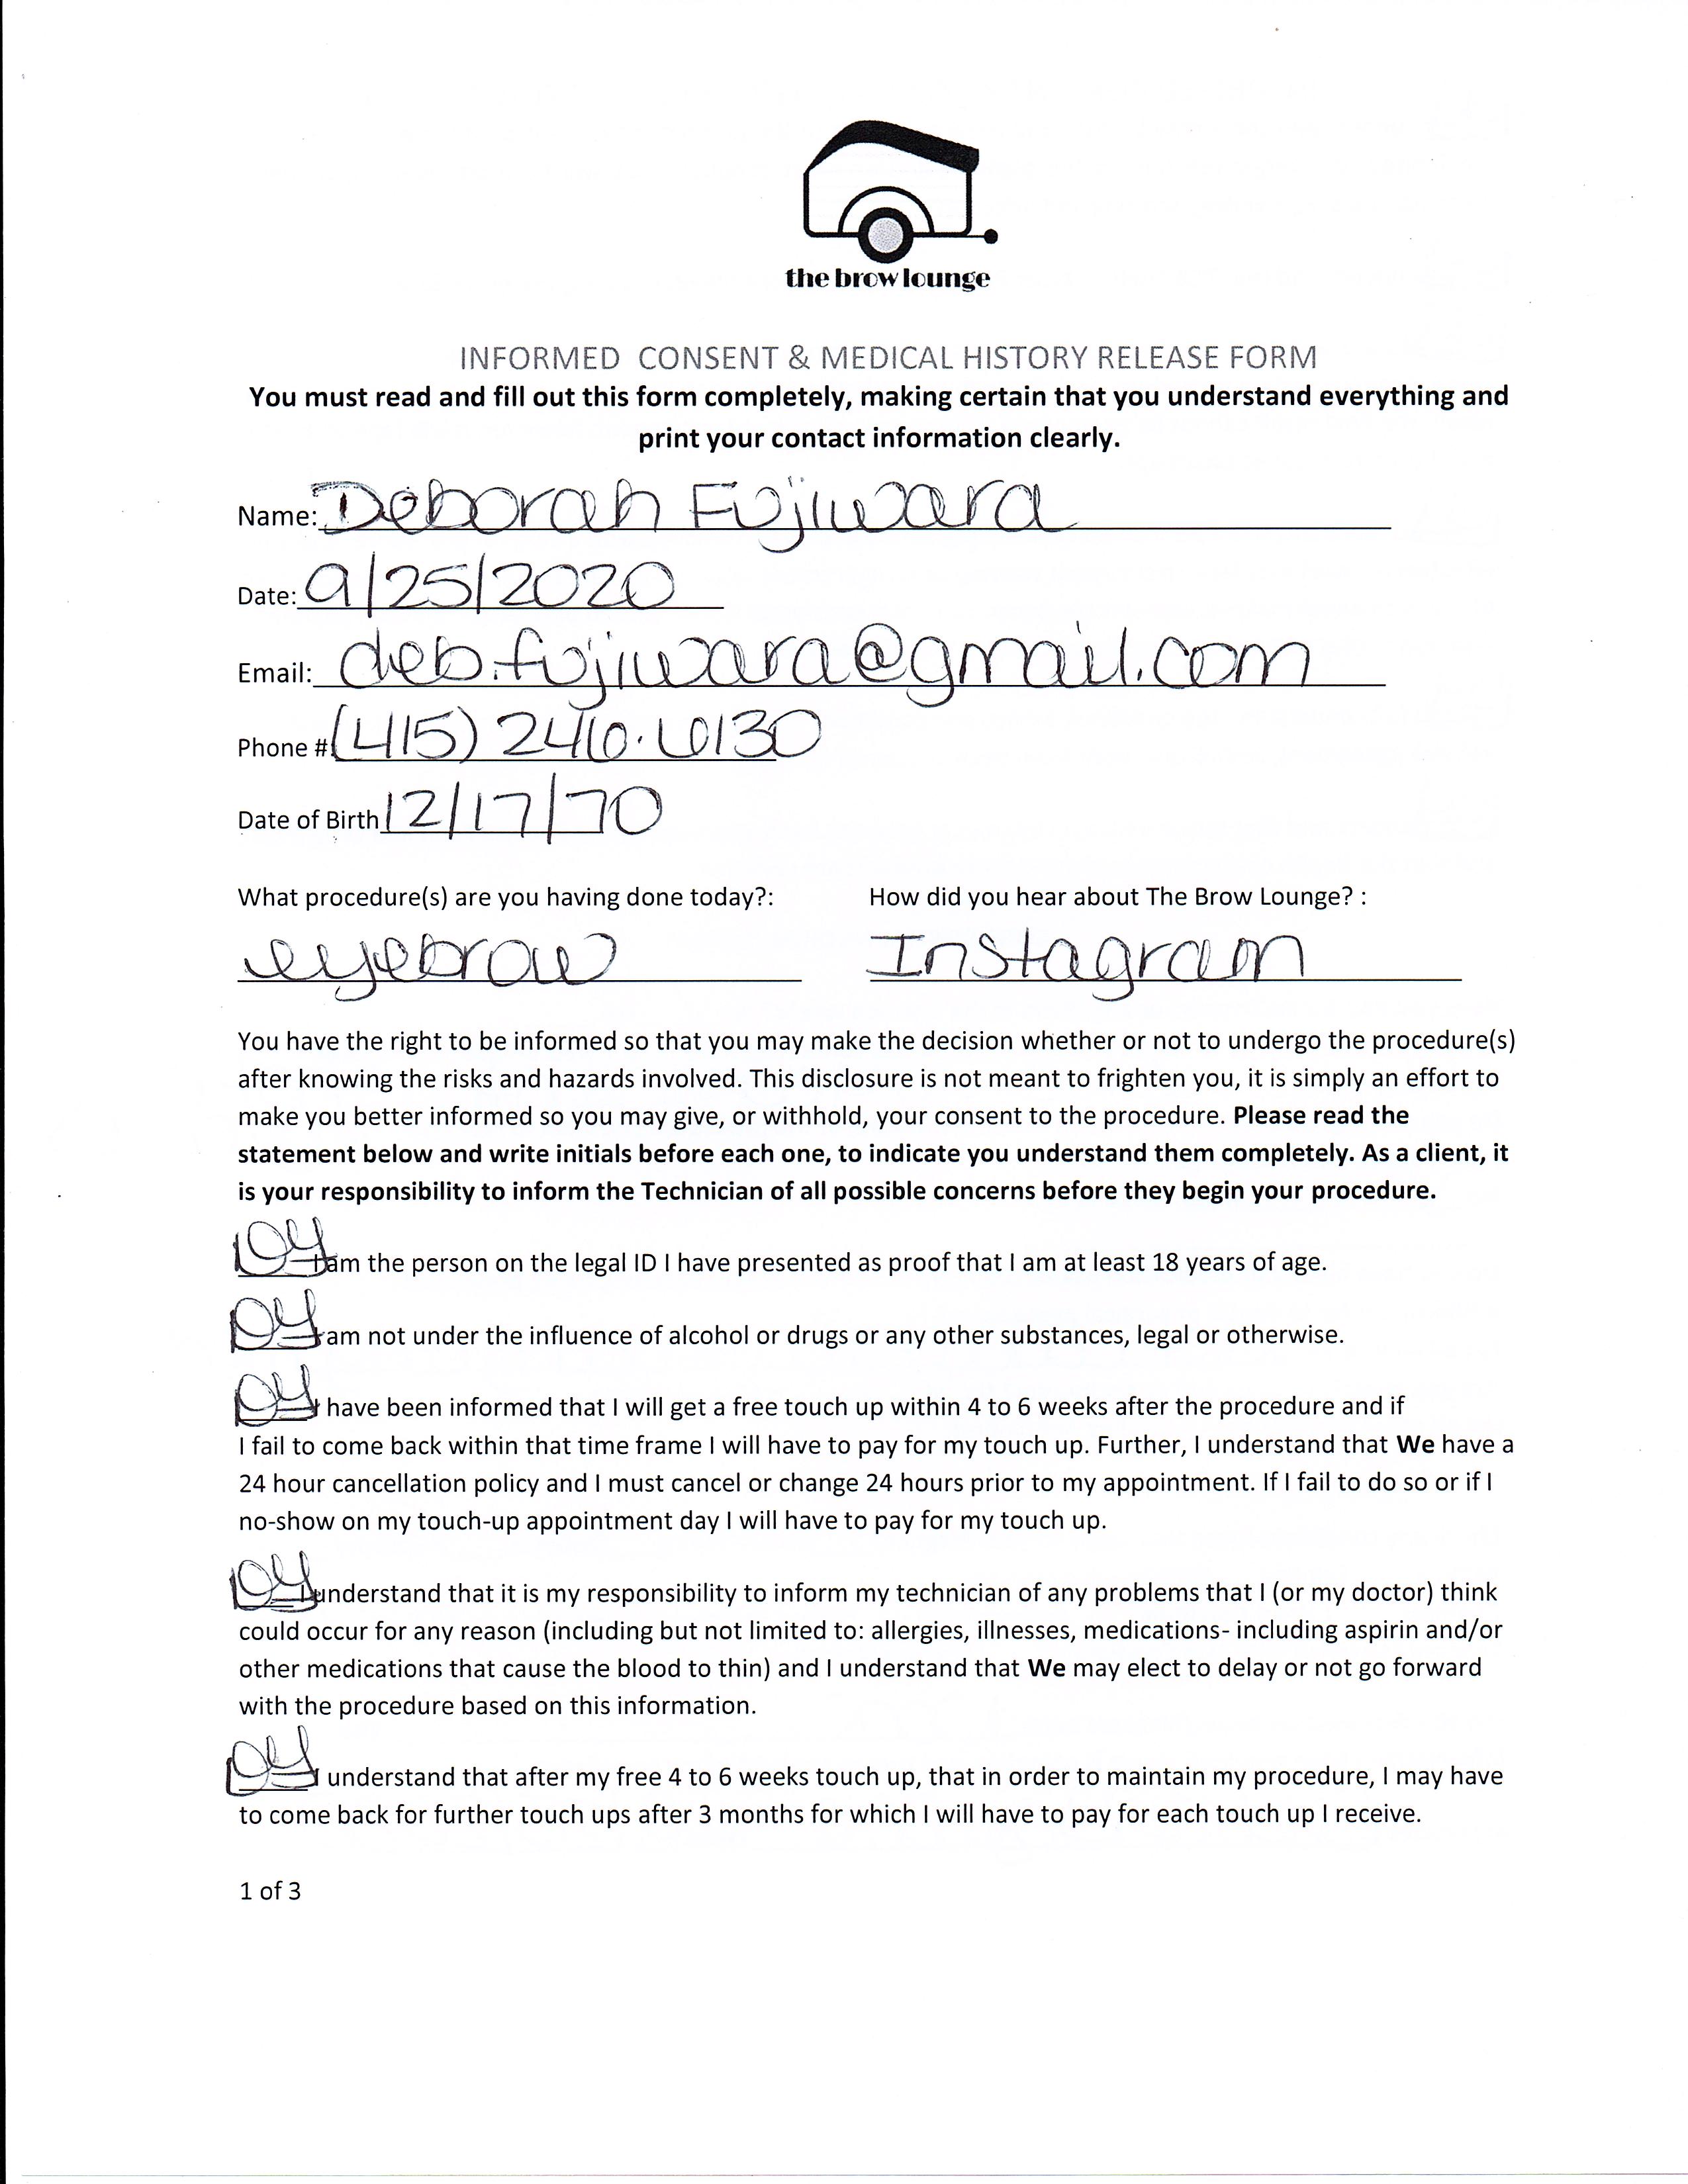 the brow lounge
INFORMED CONSENT & MEDICAL HISTORY RELEASE FORM
You must read and fill out this form completely, making certain that you understand everything and
print your contact information clearly.
Name: Deborah Fujiwara
Date: 9/25/2020
Email: deb.fujiwara@gmail.com
Phone # (415) 246.6130
Date of Birth 12/17/70
What procedure(s) are you having done today?: How did you hear about The Brow Lounge? :
eyebrow Instagram
You have the right to be informed so that you may make the decision whether or not to undergo the procedure(s)
after knowing the risks and hazards involved. This disclosure is not meant to frighten you, it is simply an effort to
make you better informed so you may give, or withhold, your consent to the procedure. Please read the
statement below and write initials before each one, to indicate you understand them completely. As a client, it
is your responsibility to inform the Technician of all possible concerns before they begin your procedure.
I am the person on the legal ID I have presented as proof that I am at least 18 years of age.
I am not under the influence of alcohol or drugs or any other substances, legal or otherwise.
I have been informed that I will get a free touch up within 4 to 6 weeks after the procedure and if
I fail to come back within that time frame I will have to pay for my touch up. Further, I understand that We have a
24 hour cancellation policy and I must cancel or change 24 hours prior to my appointment. If I fail to do so or if I
no-show on my touch-up appointment day I will have to pay for my touch up.
I understand that it is my responsibility to inform my technician of any problems that I (or my doctor) think
could occur for any reason (including but not limited to: allergies, illnesses, medications- including aspirin and/or
other medications that cause the blood to thin) and I understand that We may elect to delay or not go forward
with the procedure based on this information.
I understand that after my free 4 to 6 weeks touch up, that in order to maintain my procedure, I may have
to come back for further touch ups after 3 months for which I will have to pay for each touch up I receive.
1 of 3